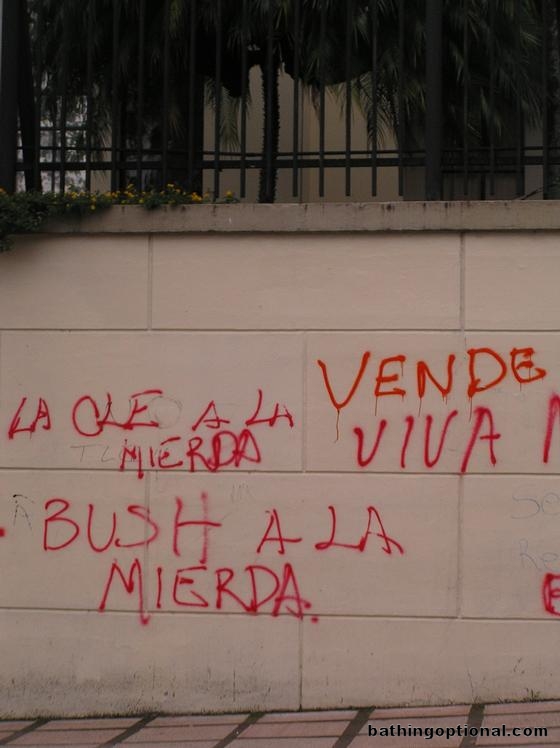 VENDE
LA OLE A LA
MIERDA
VIVA
BUSH A LA
MIERDA.
bathingoptional.com